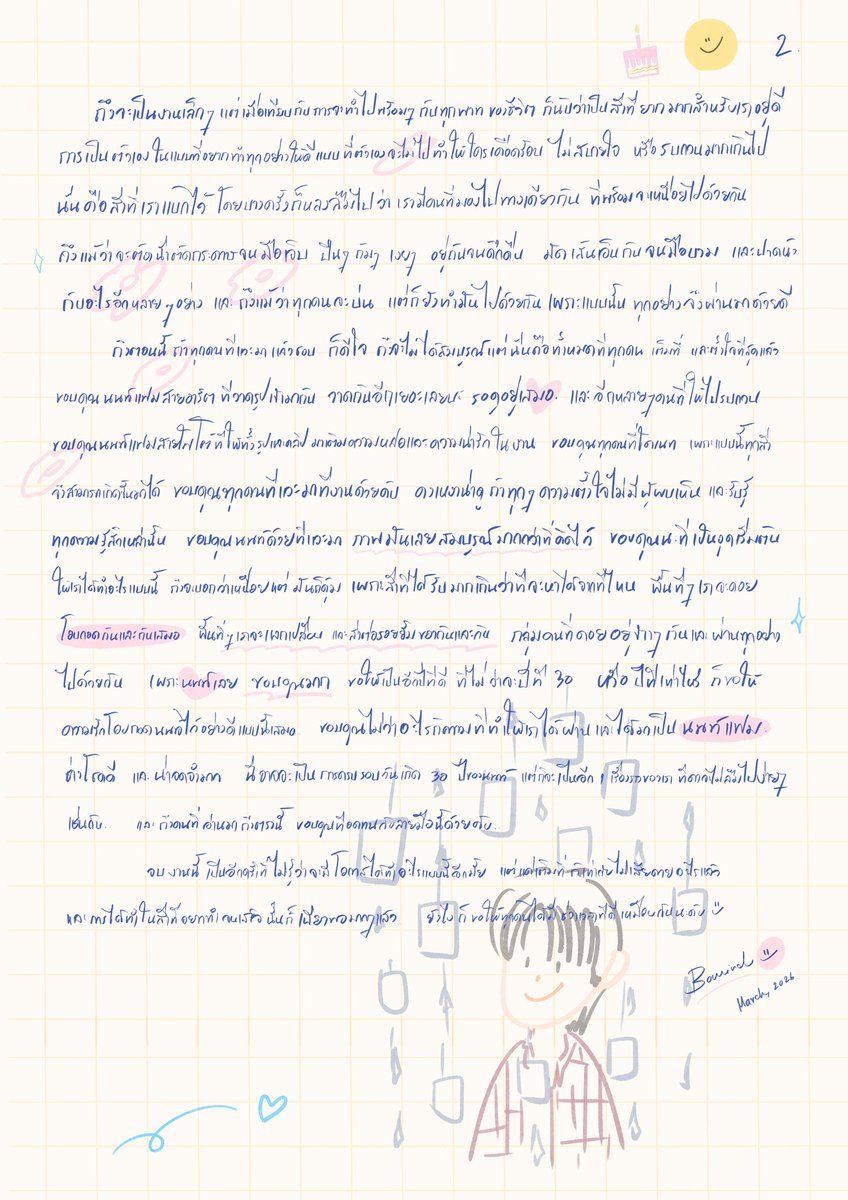 2.
ถึงจะเป็นงานเล็กๆ แต่เมื่อเทียบกับการจะทำไปพร้อมๆ กับทุกพาท ของชีวิต ก็นับว่าเป็นสิ่งที่ยากมากสำหรับเราอยู่ดี
การเป็นตัวเอง ในแบบที่อยากทำทุกอย่างให้ดี แบบที่ตัวเองจะไม่ไปทำให้ใครเดือดร้อน ไม่สบายใจ หรือรบกวนมากเกินไป
นั่นคือสิ่งที่เราแบกไว้ โดยบางครั้งก็หลงลืมไปว่า เรามีคนที่มองไปทางเดียวกัน ที่พร้อมจะเหนื่อยไปด้วยกัน
ถึงแม้ว่าจะต้องนั่งตัดกระดาษจนมือเจ็บ ปีนๆ ก้มๆ เงยๆ อยู่กันจนดึกดื่น มัดเส้นเอ็นกันจนมือบวม และปาดน้ำ
กับอะไรอีกหลายๆอย่าง และถึงแม้ว่าทุกคนจะบ่น แต่ก็ยังทำมันไปด้วยกัน เพราะแบบนั้น ทุกอย่างจึงผ่านมาด้วยดี
ถึงตอนนี้ ถ้าทุกคนที่แวะมา แล้วชอบ ก็ดีใจ ถึงจะไม่ได้สมบูรณ์ แต่นั่นคือทั้งหมดที่ทุกคน เต็มที่ และตั้งใจที่สุดแล้ว
ขอบคุณนนท์แฟมสายอาร์ตๆ ที่วาดรูปเข้ามากัน วาดกันอีกเยอะเลยนะ รอดูอยู่เสมอ และอีกหลายๆคนที่ให้ไปรบกวน
ขอบคุณนนท์แฟมสายโฟโต้ที่ให้ทั้งรูปและคลิป มาเติมความหล่อและความน่ารักในงาน ขอบคุณทุกคนที่โดเนท เพราะแบบนี้ทุกสิ่ง
จึงสามารถเกิดขึ้นมาได้ ขอบคุณทุกคนที่แวะมาที่งานด้วยครับ คงเหงาน่าดู ถ้าทุกๆความตั้งใจไม่มีผู้พบเห็น และรับรู้
ทุกความรู้สึกเหล่านั้น ขอบคุณนนท์ด้วยที่แวะมา ภาพมันเลยสมบูรณ์มากกว่าที่คิดไว้ ขอบคุณนะที่เป็นจุดเริ่มต้น
ให้เราได้ทำอะไรแบบนี้ ถึงจะบอกว่าเหนื่อยแต่ มันก็คุ้ม เพราะสิ่งที่ได้รับมากเกินว่าที่จะหาได้จากที่ไหน พื้นที่ๆเราจะคอย
โอบกอดกันและกันเสมอ พื้นที่ๆเราจะแลกเปลี่ยน และส่งต่อรอยยิ้มของกันและกัน กลุ่มคนที่คอยอยู่ข้างๆ กันและผ่านทุกอย่าง
ไปด้วยกัน เพราะนนท์เลย ขอบคุณมาก ขอให้เป็นอีกปีที่ดี ที่ไม่ว่าจะปีที่ 30 หรือ ปีที่เท่าไหร่ ก็ขอให้
ความรักโอบกอดนนท์ไว้อย่างดีแบบนี้เสมอ ขอบคุณไม่ว่าอะไรก็ตามที่ทำให้เราได้ผ่าน และได้มาเป็น นนท์แฟม
ช่างโชคดี และน่าจดจำมาก นี่อาจจะเป็นการครบรอบวันเกิด 30 ปีของนนท์ แต่ก็จะเป็นอีก 1 เรื่องราวของเรา ที่คงไม่ลืมไปง่ายๆ
เช่นกัน และถ้าคนที่อ่านมาถึงตรงนี้ ขอบคุณที่อดทนกับลายมือนี้ด้วยครับ
จบงานนี้ เป็นอีกครั้งที่ไม่รู้ว่าจะมีโอกาสได้ทำอะไรแบบนี้อีกมั้ย แต่แค่เต็มที่ ก็เท่ากับไม่เสียดายอะไรแล้ว
และการได้ทำในสิ่งที่อยากทำจนเสร็จ นั้นก็เพียงพอมากๆแล้ว ยังไงก็ ขอให้ทุกคนได้มีช่วงเวลาที่ดีเหมือนกันนะครับ
March, 2026